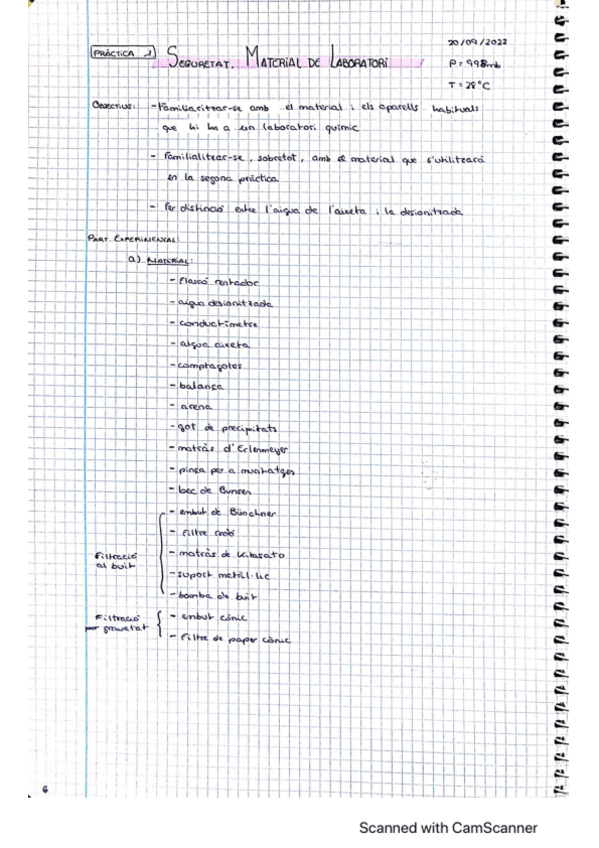 PRÀCTICA 1 SEGURETAT. MATERIAL DE LABORATORI
20/09/2022
P = 998 mb
T = 28°C
OBJECTIUS: - Familiaritzar-se amb el material i els aparells habituals
que hi ha a un laboratori químic
- Familialitzar-se, sobretot, amb el material que s'utilitzarà
en la segona pràctica
- Fer distinció entre l'aigua de l'aixeta i la desionitzada
PART EXPERIMENTAL:
a) MATERIAL:
- flascó rentador
- aigua desionitzada
- conductímetre
- aigua aixeta
- comptagotes
- balança
- arena
- got de precipitats
- matràs d'Erlenmeyer
- pinça per a muntatges
- bec de Bunsen
- embut de Bünchner
- filtre
Filtració
al buit
- matràs de Kitasato
- suport metàl·lic
- bomba de buit
Filtració
gravetat
- embut cònic
- filtre de paper cònic
6
Scanned with CamScanner